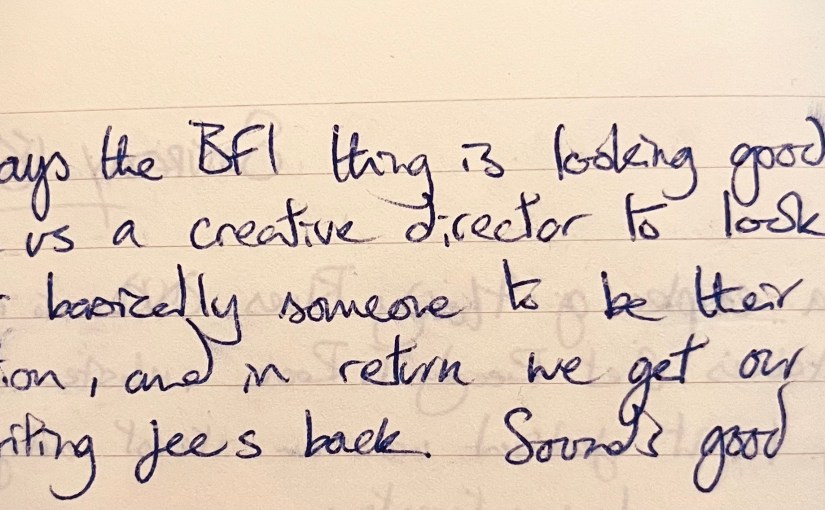 ays the BFI thing is looking good
us a creative director to look
basically someone to be their
ion, and in return we get our
riting fees back. Sounds good